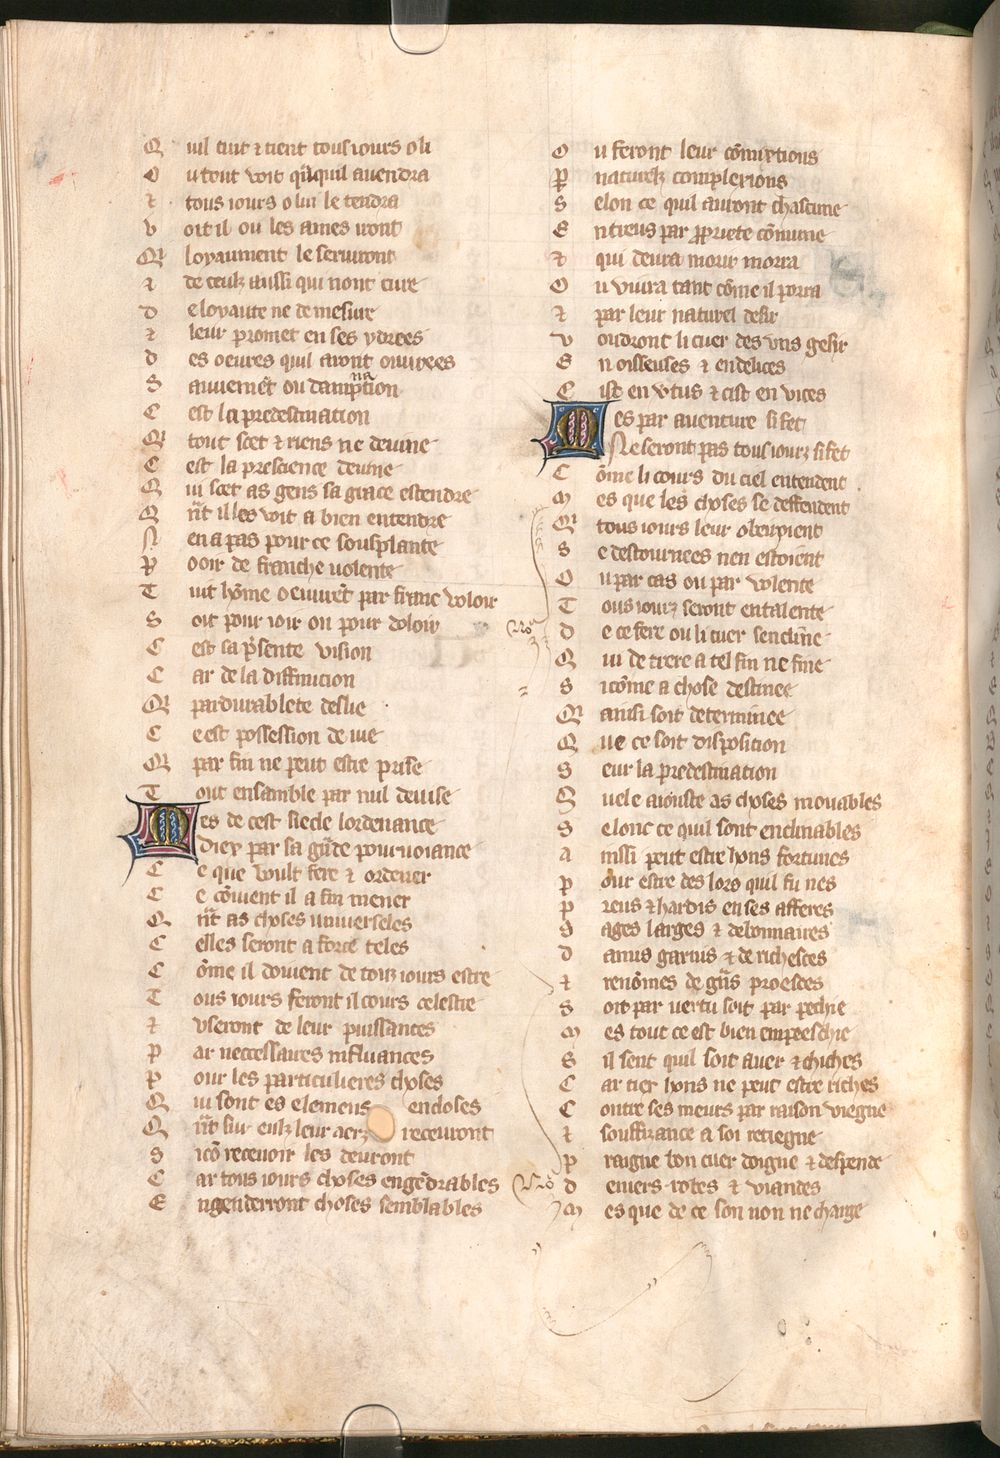 Quil tint ⁊ tient tousiours o li
Ou tout voit qͣnquil auendra
⁊ tous iours o lui le tendra
Voit il ou les ames iront
Qͥ loyaument le seruiront
⁊ de ceulz aussi qui nont cure
De loyaute ne de mesure
⁊ leur promet en ses ydrees
Des oeures quil auront ouurees
Sauuemēt ou dampnation
Cest la predestination
Qͥ tout scet ⁊ riens ne deuine
Cest la prescience deuine
Qui scet as gens sa grace estendre
Qn̄t il les voit a bien entendre
Nen a pas pour ce sousplante
Pooir de franche uolente
Tuit hōme oeuurēt par franc voloir
Soit pour ioir ou pour doloir
Cest sa p̄sente vision
Car de la diffinicion
Qͥ pardurablete deslie
Ce est possession de uie
Qͥ par fin ne peut estre prise
Tout ensamble par nul deuise
Mes de cest siecle lordenance
Diex par sa grāde pouruoiance
Ce que voult fere ⁊ ordener
Ce cōuient il a fin mener
Qn̄t as choses uniuerseles
Celles seront a force teles
Cōme il doiuent de touz iours estre
Tous iours feront il cours celestre
⁊ vseront de leur puissances
Par neccessaires influances
Pour les particulieres choses
Qui sont es elemens encloses
Qn̄t sur eulz leur aerz receuront
Sicō receuoir les deuront
Car tous iours choses engēdrables
Engenderront choses semblables
Ou feront leur cōmixtions
Par naturelz complexions
Selon ce quil auront chascune
Entreus par ꝓpriete cōmune
⁊ qui deura morir morra
Ou viura tant cōme il porra
⁊ par leur naturel desir
Voudront li cuer des vns gesir
En oisseuses ⁊ en delices
Cist en v̄tus ⁊ cist en vices
Mes par auenture si fet
Ne seront pas tous iourz si fet
Cōme li cours du ciel entendent
Mes que les choses se deffendent
Qͥ tous iours leur obeyxient
Se destournees nen estoient
Ou par cas ou par volente
Tous iourz seront entalente
De ce fere ou li cuer sencline
Qui de trere a tel fin ne fine
Sicōme a chose destinee
Qͥ ainsi soit determinee
Que ce soit disposition
Seur la predestination
Quele aiouste as choses mouables
Selonc ce quil sont enclinables
Ainsi peut estre hons fortunes
Pour estre des lors quil fu nes
Preus ⁊ hardis en ses afferes
Sages larges ⁊ debonnaires
Damis garnis ⁊ de richesces
⁊ renōmes de grās proesces
Soit par uertu soit par pechie
Mes tout ce est bien empeeschie
Sil sent quil soit auer ⁊ chiches
Car tier hons ne peut estre riches
Contre ses meurs par raison viegne
⁊ souffizance a soi retiegne
Praigne bon cuer doigne ⁊ despende
Deniers robes ⁊ viandes
Mes que de ce son non ne charge